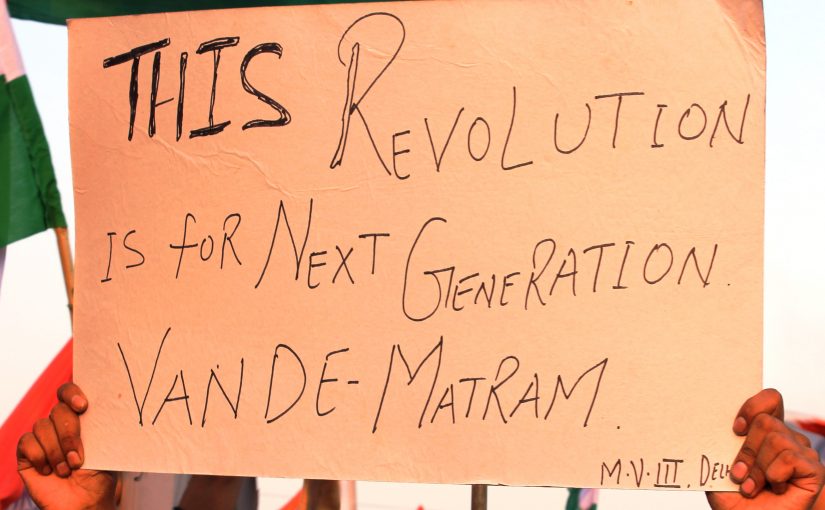 THIS REVOLUTION
IS FOR NEXT GENERATION.
VANDE-MATRAM.
M.V.III. DELH